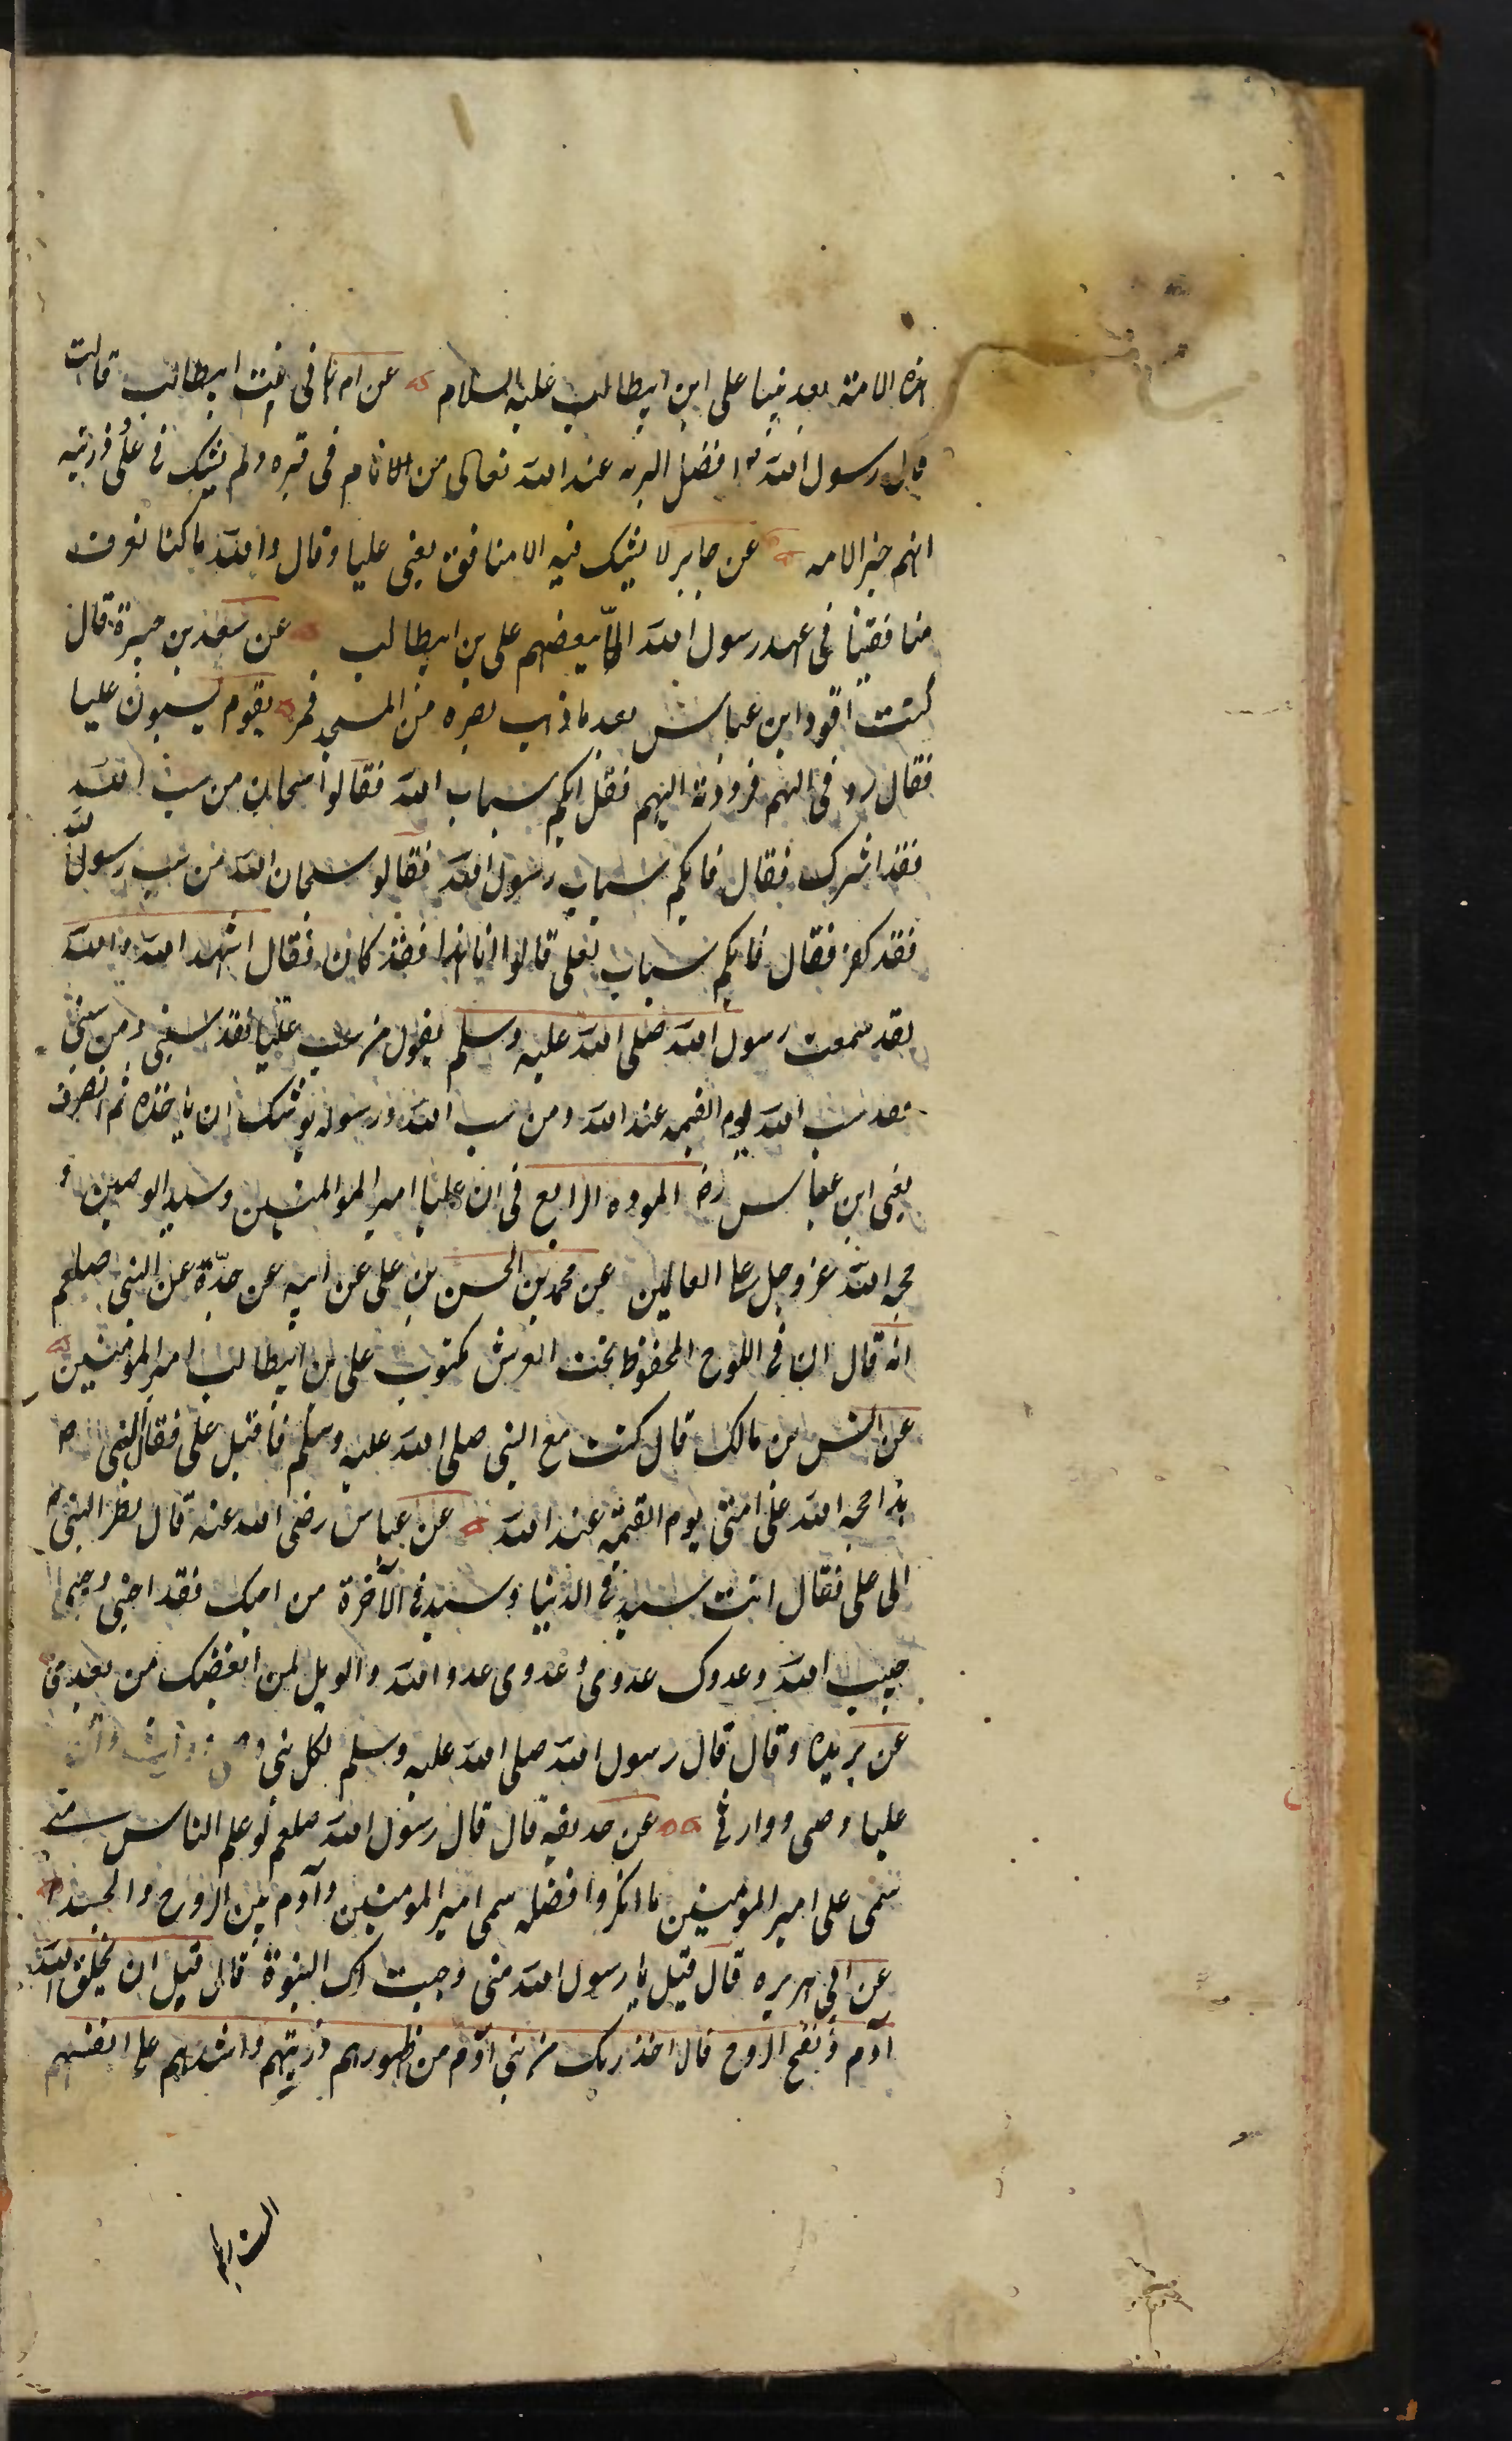 هذه الامة بعد نبینا علی ابن ابیطالب علیه السلام عن ام هانی بنت ابیطالب قالت
قال رسول الله م افضل البریه عند الله تعالی من نام فی قبره ولم یشک فی علی وذریته
انهم خیر الامه عن جابر لا یشک فیه الا منافق یعنی علیا وقال والله ما کنا نعرف
منافقینا فی عهد رسول الله الا ببعضهم علی بن ابیطالب عن سعد بن جبیرة قال
کنت اقود ابن عباس بعد ما ذهب بصره من المسجد فمر بقوم یسبون علیا
فقال ردنی الیهم فرددته الیهم فقال ایکم سباب الله فقالوا سبحان من سب الله
فقد اشرک فقال فایکم سباب رسول الله فقالو سبحان الله من سب رسول الله
فقد کفر فقال فایکم سباب لعلی قالوا اما هذا فقد کان فقال اشهد الله والله
لقد سمعت رسول الله صلی الله علیه وسلم یقول من سب علیا فقد سبنی ومن سبنی
فقد سب الله یوم القیمه عند الله ومن سب الله ورسوله یوشک ان یاخذه ثم انصرف
یعنی ابن عباس رض الموده الرابع فی ان علیا امیر المؤمنین وسید الوصیین و
حجه الله عز وجل علی العالمین عن محمد بن الحسن بن علی عن ابیه عن جدّه عن النبی صلعم
انه قال ان فی اللوح المحفوظ تحت العرش مکتوب علی بن ابیطالب امیر المؤمنین
عن انس بن مالک قال کنت مع النبی صلی الله علیه وسلم فاقبل علی فقال النبی ص
هذا حجه الله علی امتی یوم القیمة عند الله عن عباس رضی الله عنه قال نظر النبی م
الی علی فقال انت سید فی الدنیا وسید فی الآخرة من احبک فقد احبنی وحبیبی
حبیب الله وعدوک عدوی وعدوی عدو الله والویل لمن ابغضک من بعدی
عن بریده وقال قال رسول الله صلی الله علیه وسلم لکل نبی وصی ووارث وان
علیا وصی ووارثی عن حذیفه قال قال رسول الله صلعم لو علم الناس متی
سمی علی امیر المؤمنین ما انکروا فضله سمی امیر المؤمنین وآدم بین الروح والجسد
عن ابی هریره قال قیل یا رسول الله متی وجبت لک النبوة قال قبل ان یخلق الله
آدم ونفخ الروح قال اخذ ربک من بنی آدم من ظهورهم ذریتهم واشهدهم علی انفسهم